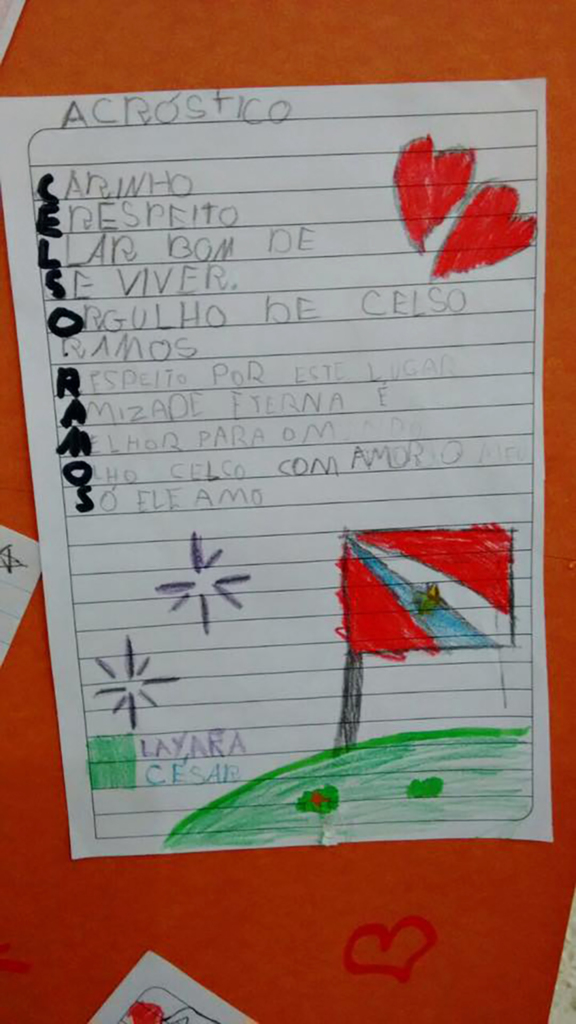 ACRÓSTICO
CARINHO
E RESPEITO
LAR BOM DE
SE VIVER.
ORGULHO DE CELSO
RAMOS
RESPEITO POR ESTE LUGAR
AMIZADE ETERNA É
MELHOR PARA O MUNDO
OLHO CELSO COM AMOR O MEU
SÓ ELE AMO
LAYARA
CÉSAR